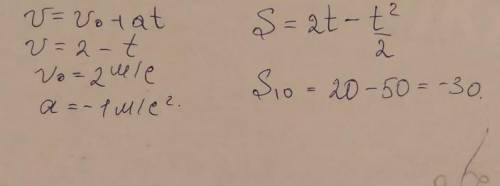 v = v₀ + at
v = 2 - t
v₀ = 2 м/с
a = -1 м/с².
S = 2t - t²/2
S₁₀ = 20 - 50 = -30.